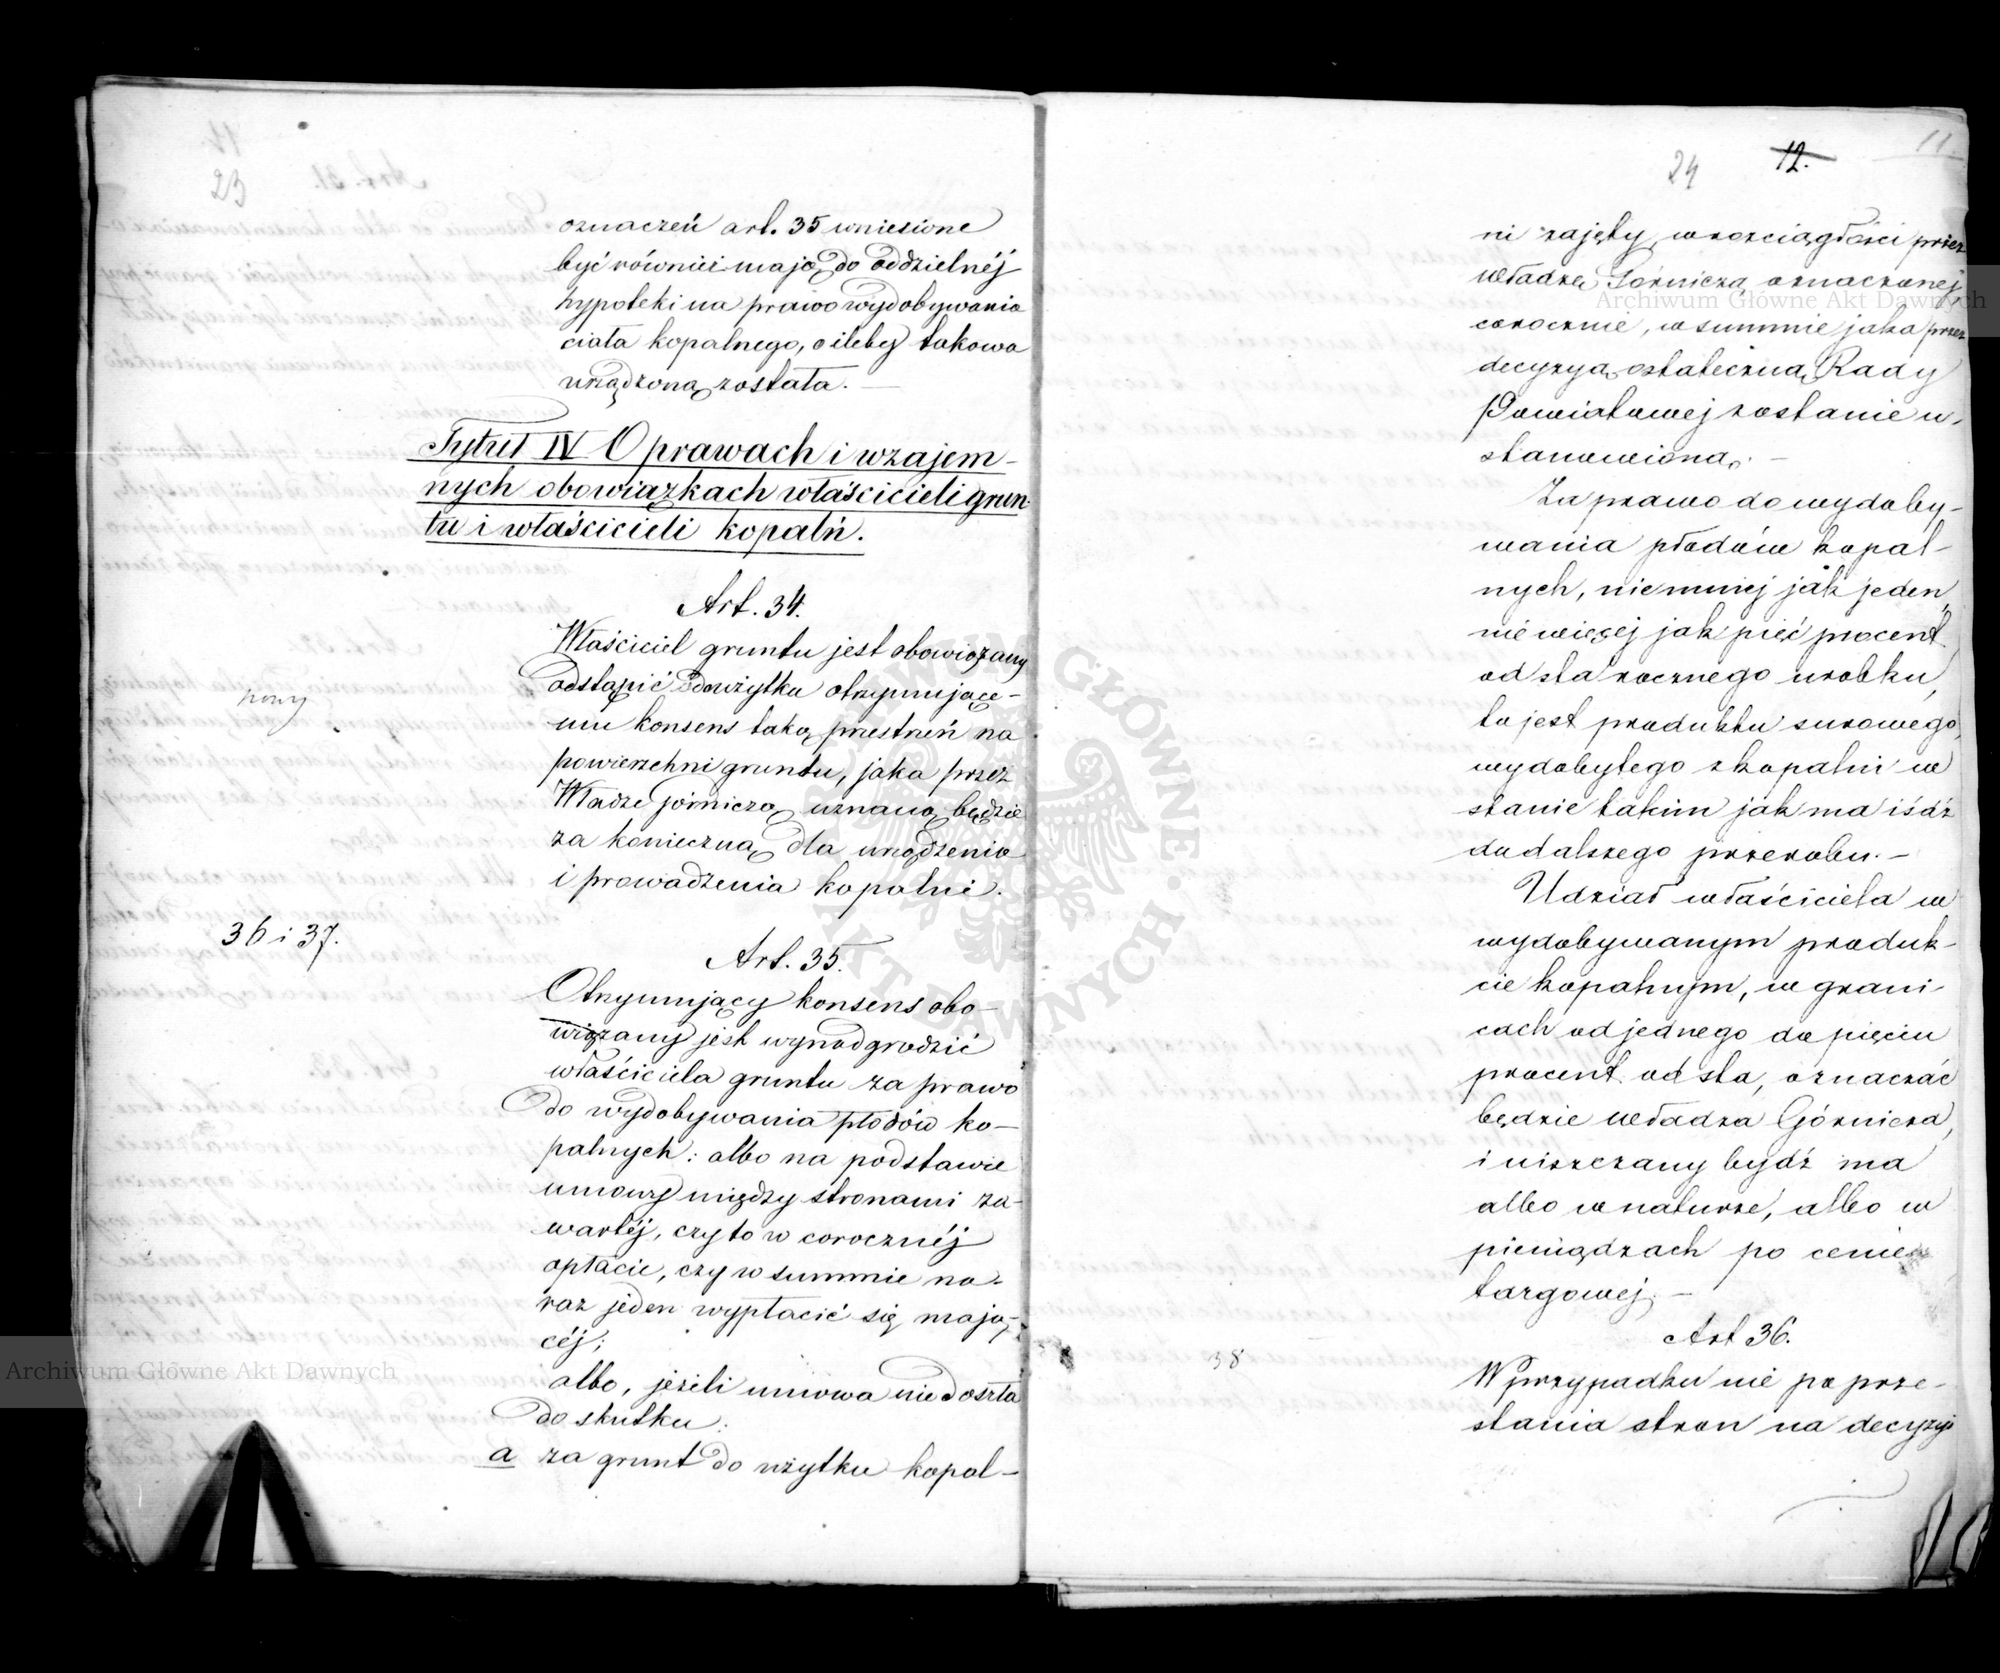 23
oznaczeń art. 35 wniesione
być równiéż mają, do oddzielnéj
hypoteki na prawo wydobywania
ciała kopalnego, o ileby takowa
urządzoną została. —
Tytuł IV O prawach i wzajem-
nych obowiązkach właścicieli grun-
tu i właścicieli kopalń.
Art. 34.
nowy
Właściciel gruntu jest obowiązany
odstąpić do użytku otrzymujące-
mu konsens taką przestrzeń na
powierzchni gruntu, jaka przez
Władzę górniczą uznaną będzie
za konieczną dla urządzenia
i prowadzenia kopalni.
36 i 37.
Art. 35.
Otrzymujący konsens obo-
wiązany jest wynadgrodzić
właściciela gruntu za prawo
do wydobywania płodów ko-
palnych: albo na podstawie
umowy między stronami za-
wartéj, czy to w corocznéj
opłacie, czy w summie na-
raz jeden wypłacić się mają-
céj;
albo, jeżeli umowa nie doszła
do skutku:
a za grunt do użytku kopal-
11
24 12.
ni zajęty, w rozciągłości przez
władzę Górniczą oznaczonej
corocznie, w summie jaka przez
decyzyą ostateczną Rady
Powiatowej zostanie u-
stanowioną. —
Za prawo do wydoby-
wania płodów kopal-
nych, nie mniej jak jeden,
nie więcej jak pięć procent
od sta rocznego urobku,
to jest produktu surowego,
wydobytego z kopalni w
stanie takim jak ma iśdź
do dalszego przerobu. —
Udział właściciela w
wydobywanym produk-
cie kopalnym, w grani-
cach od jednego do pięciu
procent od sta, oznaczać
będzie władza Górnicza,
i uiszczany bydź ma
albo w naturze, albo w
pieniądzach po cenie
targowej. —
38
Art 36.
W przypadku nie poprze-
stania stron na decyzyi
Archiwum Główne Akt Dawnych
Archiwum Główne Akt Dawnych
ARCHIWUM GŁÓWNE AKT DAWNYCH